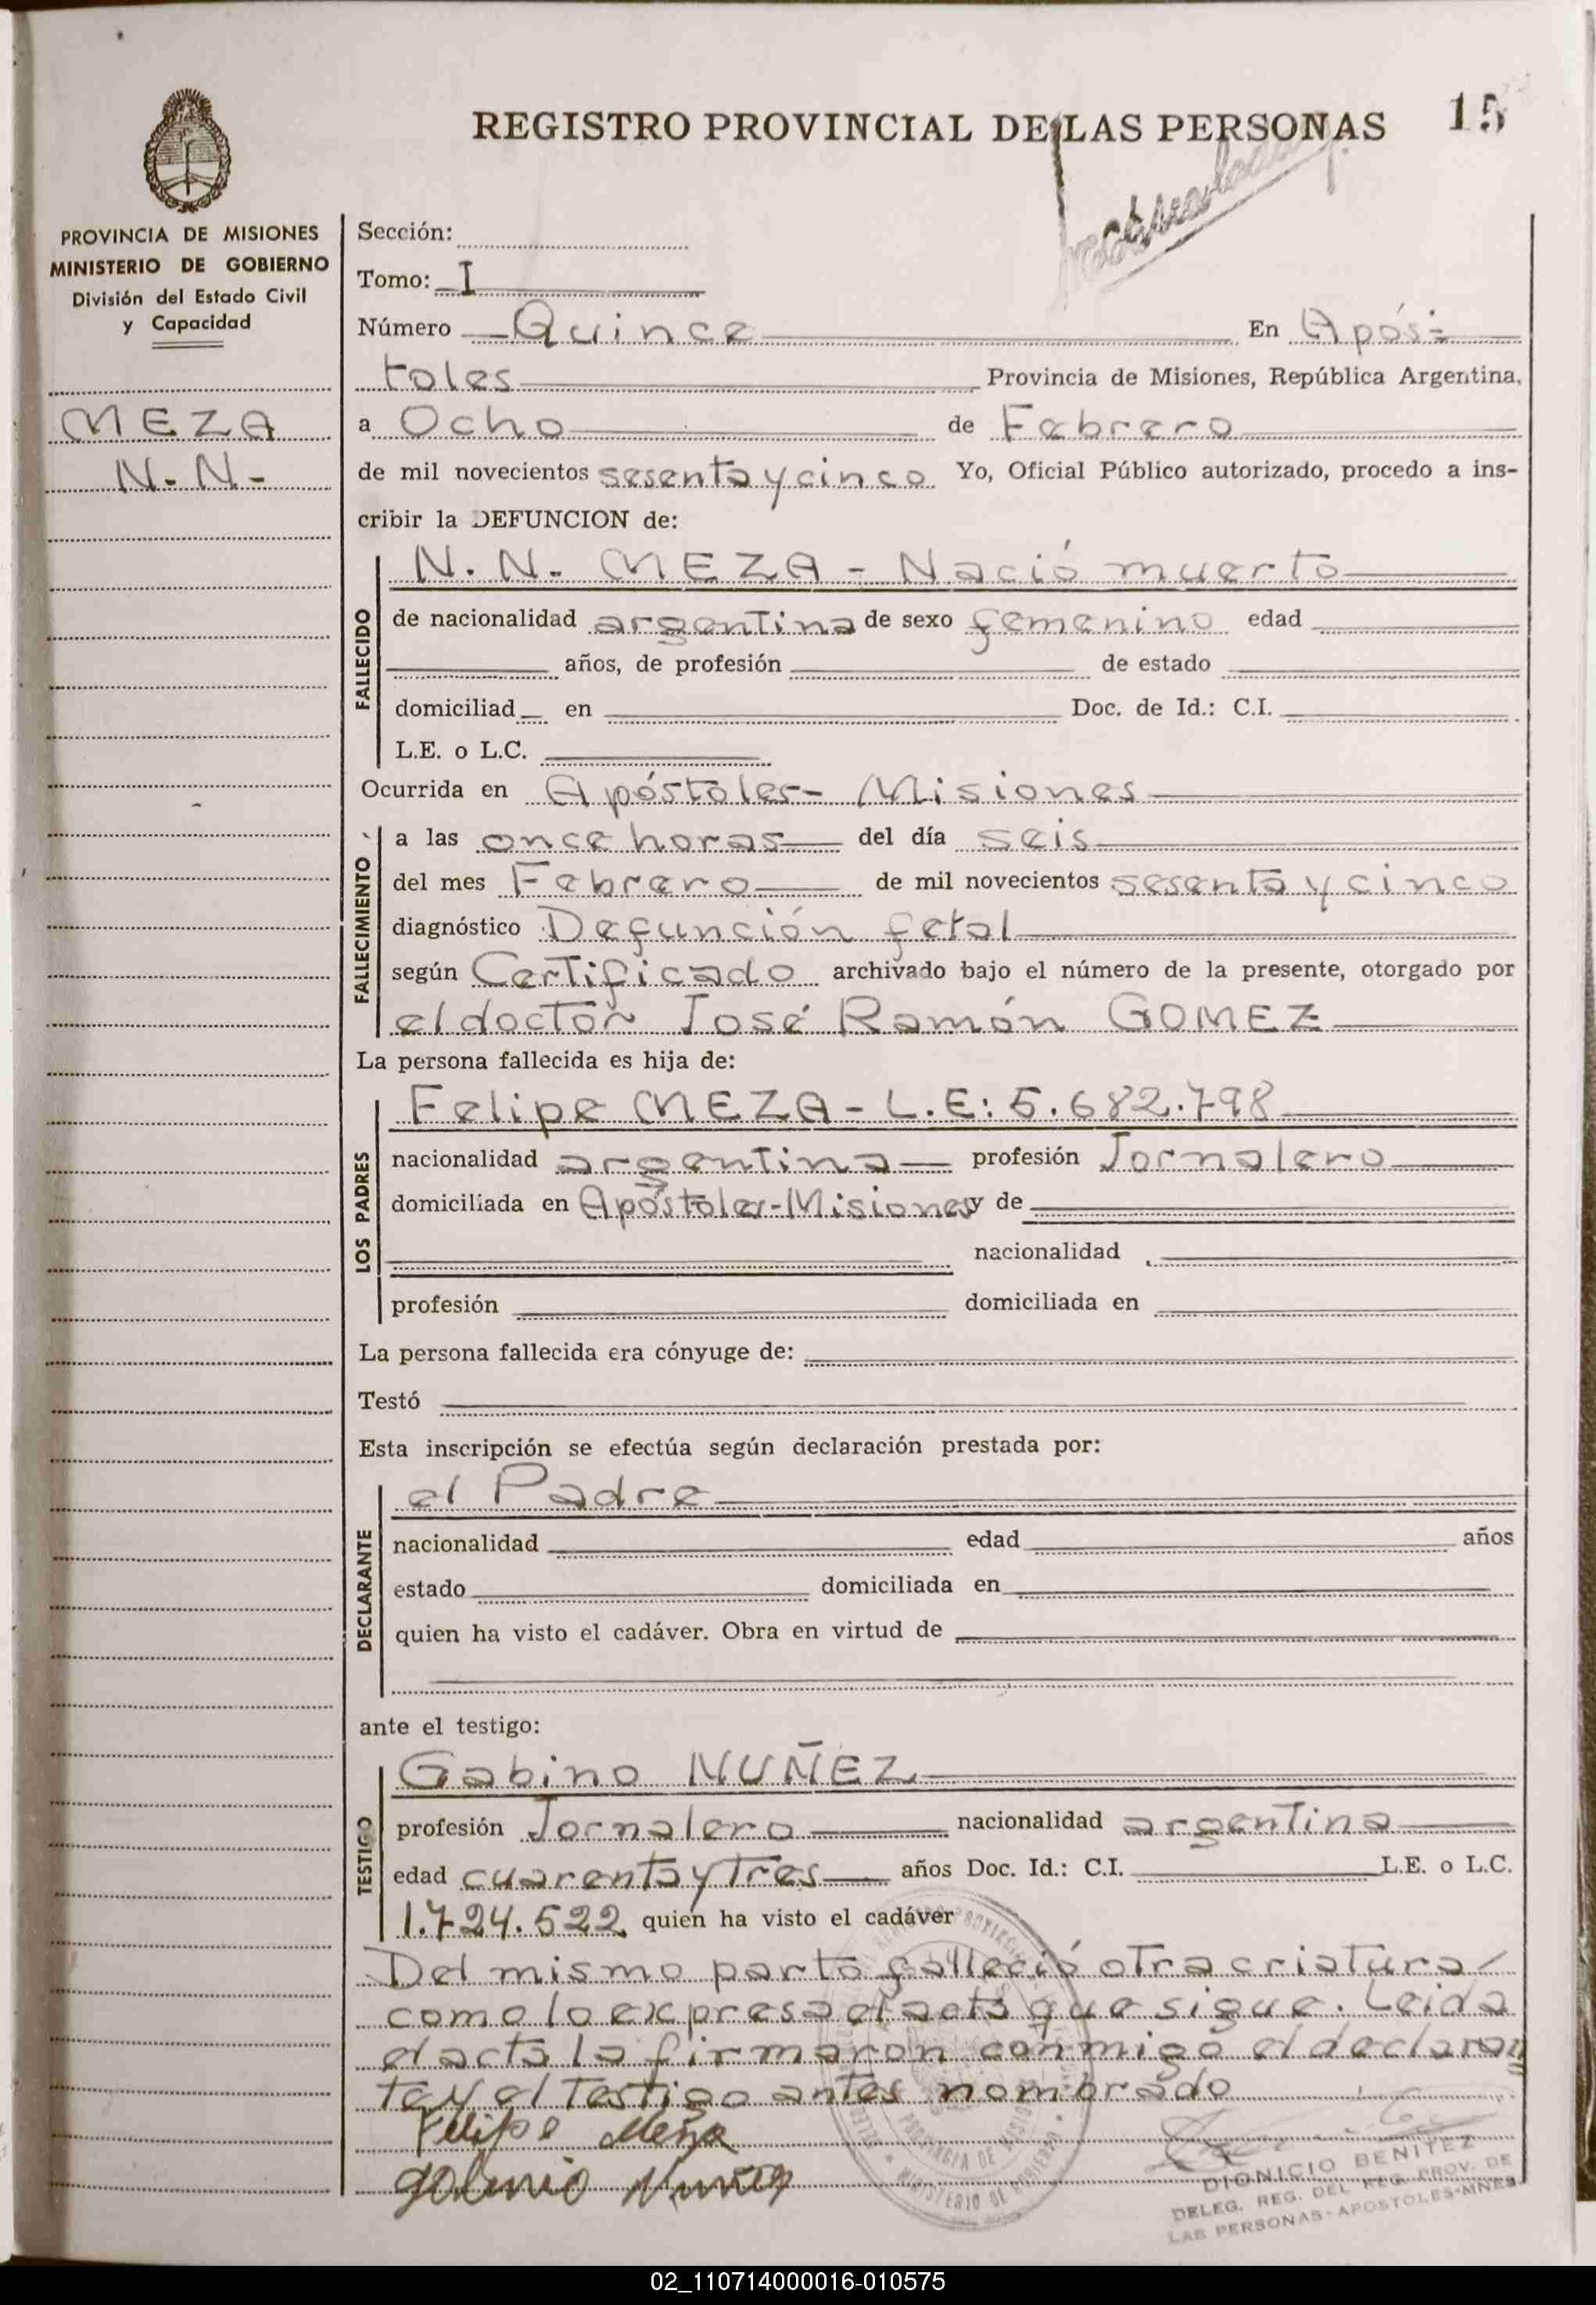 REGISTRO PROVINCIAL DE LAS PERSONAS 15
PROVINCIA DE MISIONES
MINISTERIO DE GOBIERNO
División del Estado Civil
y Capacidad
MEZA
N.N.-
Sección:
Tomo: I
Número Quince En Após=
toles Provincia de Misiones, República Argentina,
a Ocho de Febrero
de mil novecientos sesenta y cinco Yo, Oficial Público autorizado, procedo a ins-
cribir la DEFUNCION de:
FALLECIDO
N. N. MEZA - Nació muerto
de nacionalidad argentina de sexo femenino edad
años, de profesión de estado
domiciliad en Doc. de Id.: C.I.
L.E. o L.C.
Ocurrida en Apóstoles- Misiones
FALLECIMIENTO
a las once horas del día seis
del mes Febrero de mil novecientos sesenta y cinco
diagnóstico Defunción fetal
según Certificado archivado bajo el número de la presente, otorgado por
el doctor José Ramón GOMEZ
La persona fallecida es hija de:
LOS PADRES
Felipe MEZA - L.E: 5.682.798
nacionalidad argentina profesión Jornalero
domiciliada en Apóstoles-Misiones y de
nacionalidad
profesión domiciliada en
La persona fallecida era cónyuge de:
Testó
Esta inscripción se efectúa según declaración prestada por:
DECLARANTE
el Padre
nacionalidad edad años
estado domiciliada en
quien ha visto el cadáver. Obra en virtud de
ante el testigo:
TESTIGO
Gabino NUÑEZ
profesión Jornalero nacionalidad argentina
edad cuarenta y tres años Doc. Id.: C.I. L.E. o L.C.
1.724.522 quien ha visto el cadáver
Del mismo parto falleció otra criatura
como lo expresa el acta que sigue. Leida
el acta la firmaron conmigo el declaran
te y el testigo antes nombrado
Felipe Meza
Gabino Nuñez
DIONICIO BENITEZ
DELEG. REG. DEL REG. PROV. DE
LAS PERSONAS-APOSTOLES-MNES.
02_110714000016-010575